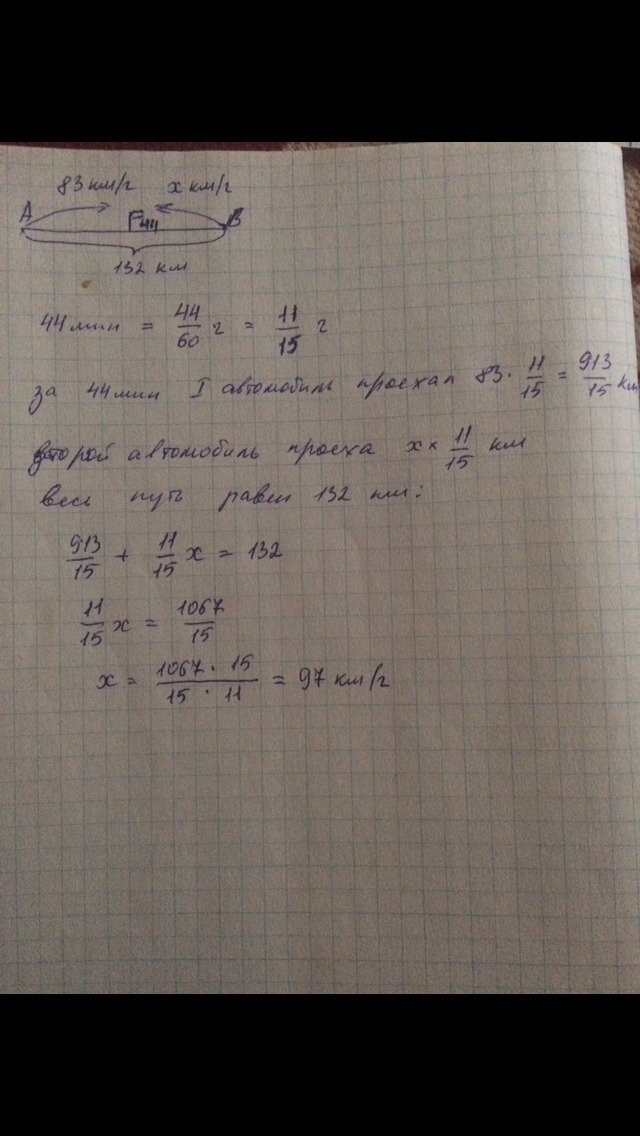 83 км/г х км/г
А F44 В
132 км
44 мин = 44/60 г = 11/15 г
за 44 мин I автомобиль проехал 83 · 11/15 = 913/15 км
второй автомобиль проеха х × 11/15 км
весь путь равен 132 км:
913/15 + 11/15 х = 132
11/15 х = 1067/15
х = 1067 · 15 / 15 · 11 = 97 км/г